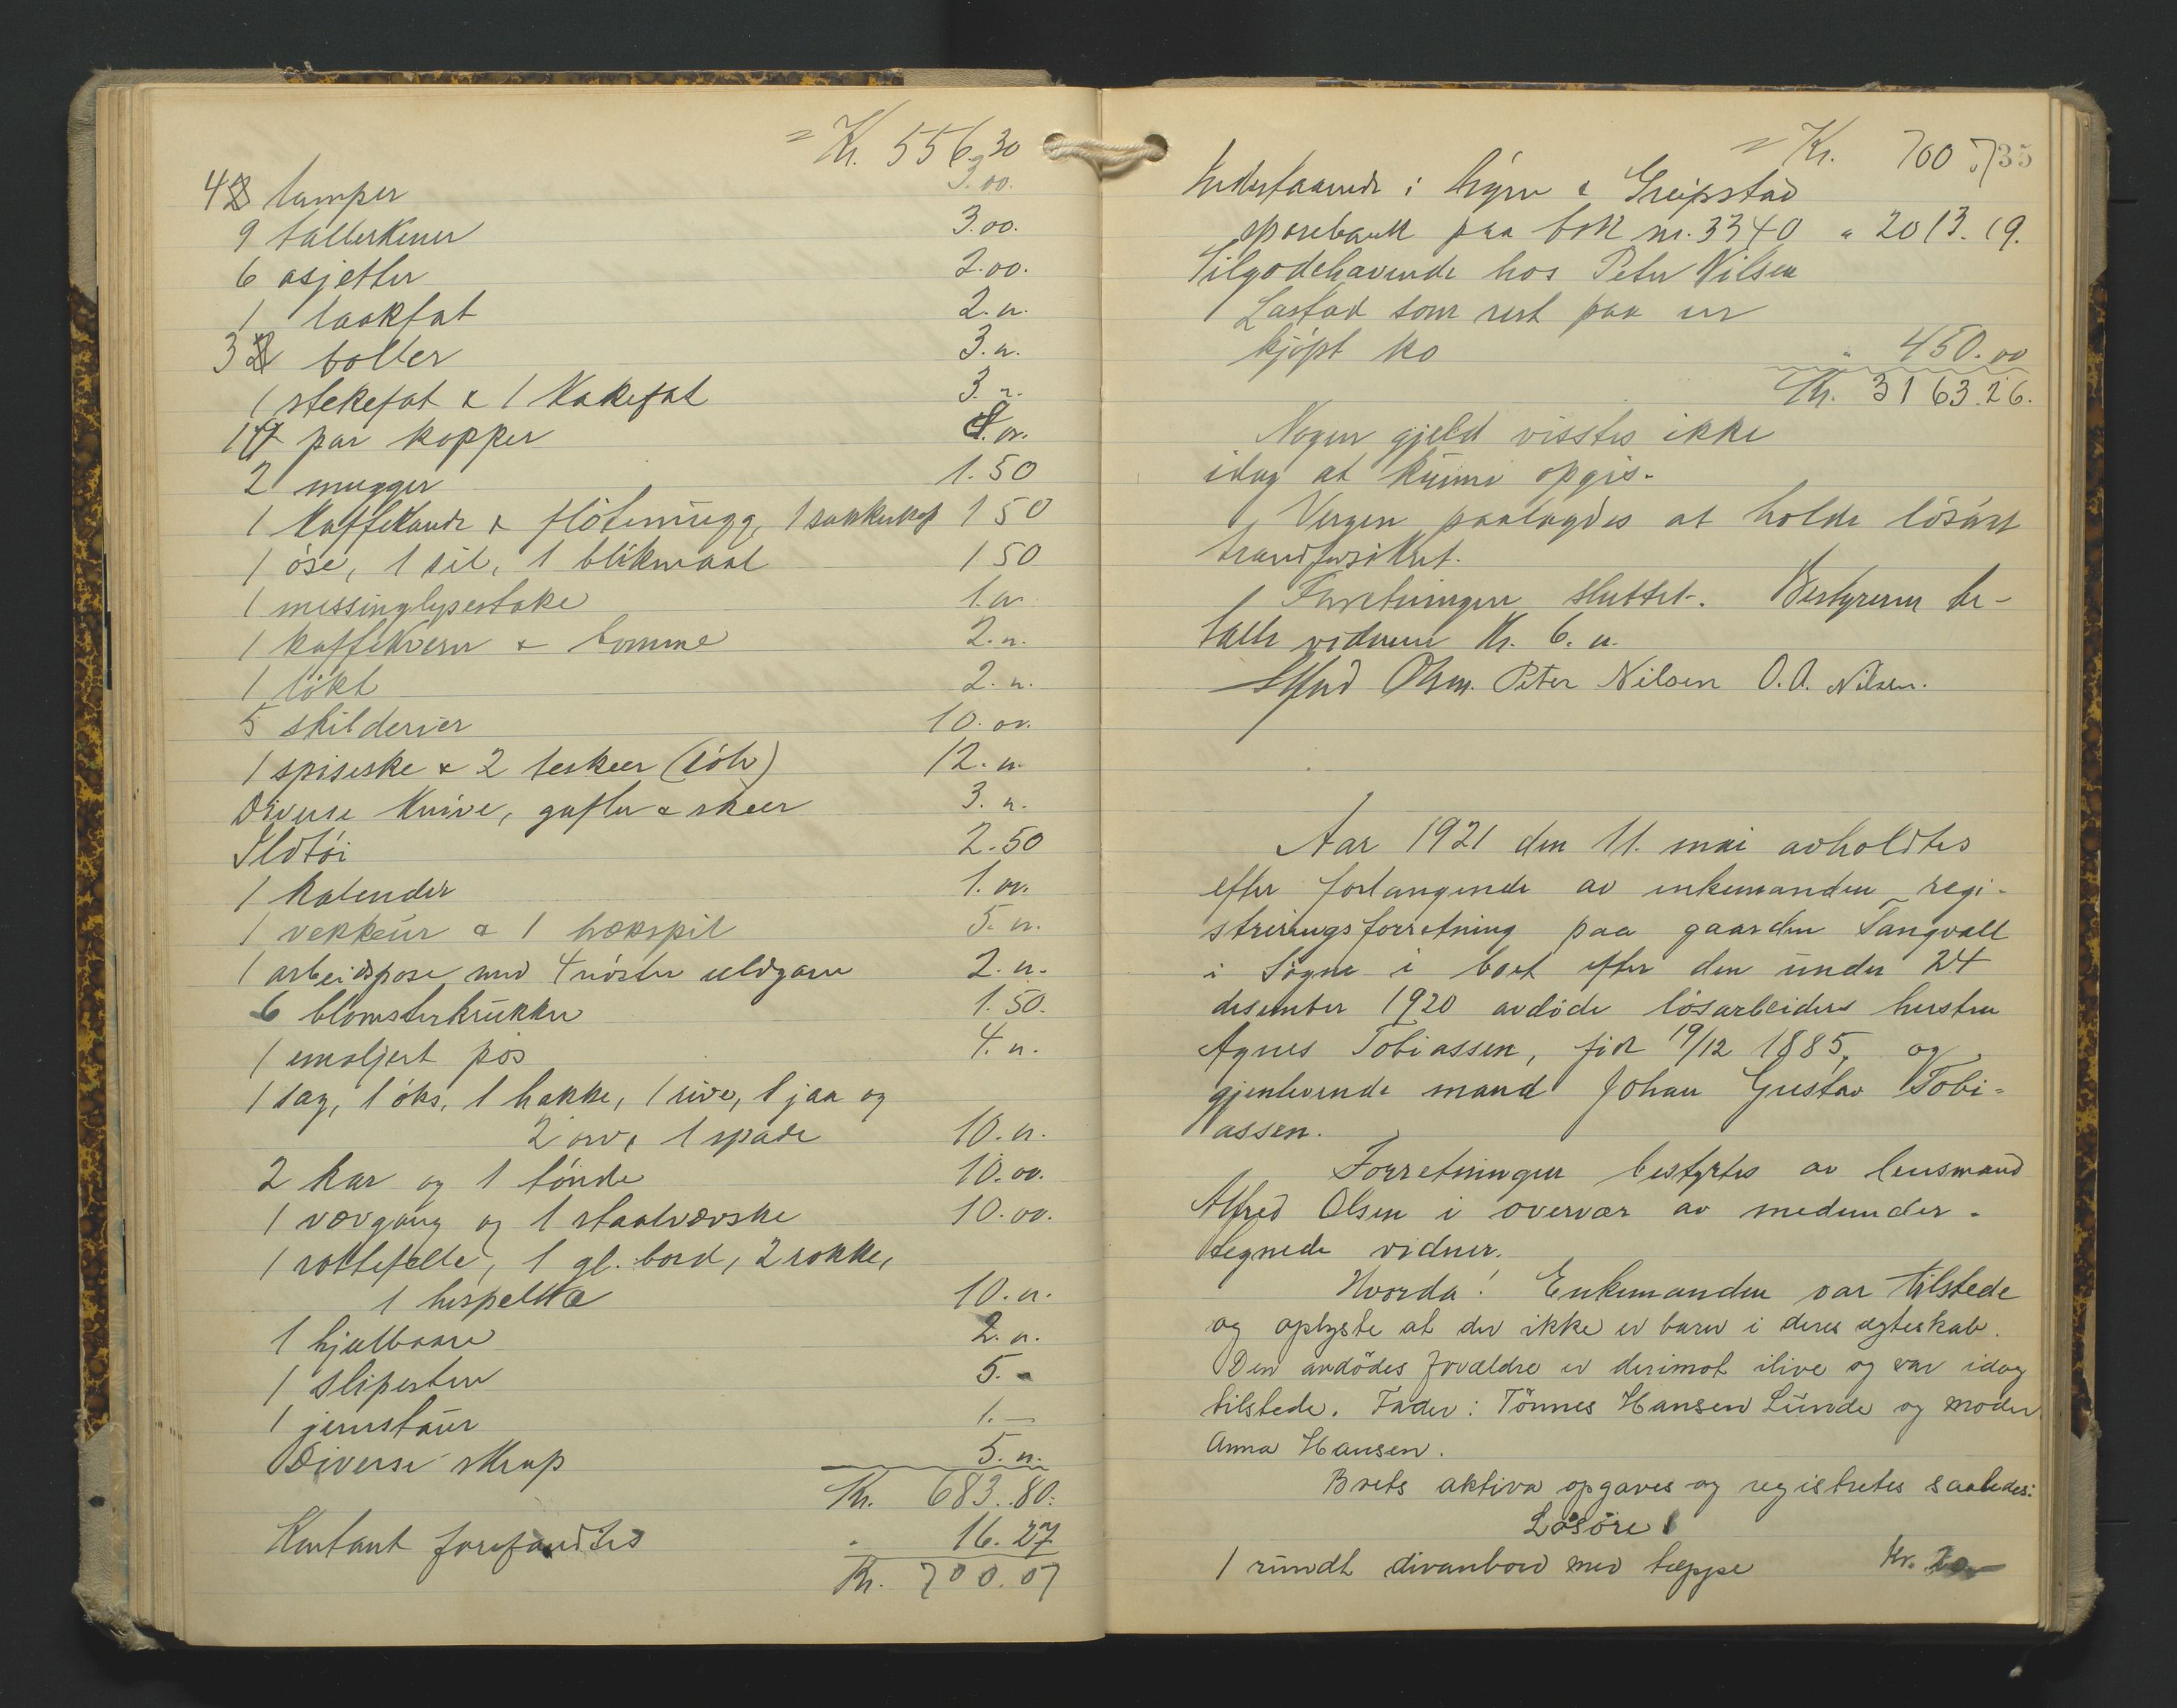 = Kr. 556.30
4 lamper 3.00.
9 tallerkener 3.00.
6 asjetter 2.00.
1 laakfat 2.n.
3 boller 3.n.
1 stekefat & 1 Kakefat 3.n.
par kopper
2 mugger 1.50
1 Kaffekande & flötemugg, 1 sukkerkop 1 50
1 öse, 1 sil, 1 blikmaal 1 50
1 messinglysestake 1.00
1 kaffekvern & bomme 2.n.
1 lökt 2.n.
5 skilderier 10.00.
1 spiseske & 2 teskeer (sölv) 12.n.
Diverse Knive, gafler & skeer 3.n.
Ildtöi 2.50
1 kalender 1.00.
1 vekkeur & 1 brækspil 5.n.
1 arbeidspose med 4 nöster uldgarn 2.n.
6 blomsterkrukker 1.50.
1 emaljert pös 4.n.
1 sag, 1 öks, 1 hakke, 1 rive, 1 ljaa og
2 orv, 1 spade 10.n.
2 kar og 1 tönde 10.00.
1 vævgang og 1 staalvævske 10.00.
1 rottefelle, 1 gl. bord, 2 rokke,
1 hespeltræ 10.n.
1 hjulbaare 2.n.
1 slipesten 5.-
1 jernstaur 1.—
Diverse skrap 5.n.
Kr. 683.80.
Kontant forefandtes " 16.27
Kr. 700.07
= Kr. 700.07 35
Indestaaende i Sögne & Greipstad
sparebank paa bok nr. 3340 " 2013.19.
Tilgodehavende hos Peter Nilsen
Lastad som rest paa en
kjöpt ko " 450.00
Kr. 3163.26.
Nogen gjeld visstes ikke
idag at kunne opgis.
Vergen paalagdes at holde lösöret
brandforsikret.
Forretningen sluttet. Bestyreren be-
talte vidnene Kr. 6.n.
Alfred Olsen. Peter Nilsen O.A. Nilsen.
Aar 1921 den 11. mai avholdtes
efter forlangende av enkemanden regi-
streringsforretning paa gaarden Tangvall
i Sögne i boet efter den under 24
desember 1920 avdöde lösarbeiders hustru
Agnes Tobiassen, född 19/12 1885, og
gjenlevende mand Johan Gustav Tobi=
assen.
Forretningen bestyrtes av lensmand
Alfred Olsen i overvær av medunder-
tegnede vidner.
Hvorda! Enkemanden var tilstede
og oplyste at der ikke er barn i deres ægteskab.
Den avdödes forældre er derimot ilive og var idag
tilstede. Fader: Tönnes Hansen Lunde og moder
Anna Hansen.
Boets aktiva opgaves og registretes saaledes:
Lösöre:
1 rundt divanbord med teppe Kr. 20.—